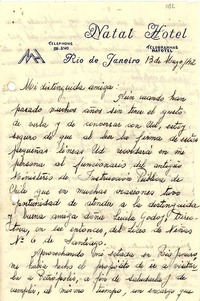 182
Natal Hotel
TELEPHONE
TELEGRAMMAS
Rio de Janeiro 13 de Mayo/942
Mi distinguida amiga:
Aún cuando han
pasado muchos años sin tener el gusto
de verla y de conversar con Ud, estoy
seguro de que al leer la firma de estas
pequeñas líneas Ud recordará en mi
persona al funcionario del antiguo
Ministerio de Instrucción Pública de
Chile que en muchas ocasiones tuvo
oportunidad de atender a la distinguida
y buena amiga doña Lucila Godoy, Direc-
tora, en ese entonces, del Liceo de Niñas
Nº 6 de Santiago.
Aprovechando mi estada en Río Janeiro
me había hecho el propósito de ir a visitar-
la a Petrópolis, a fin de saludarla y
cumplir, al mismo tiempo, un encargo que